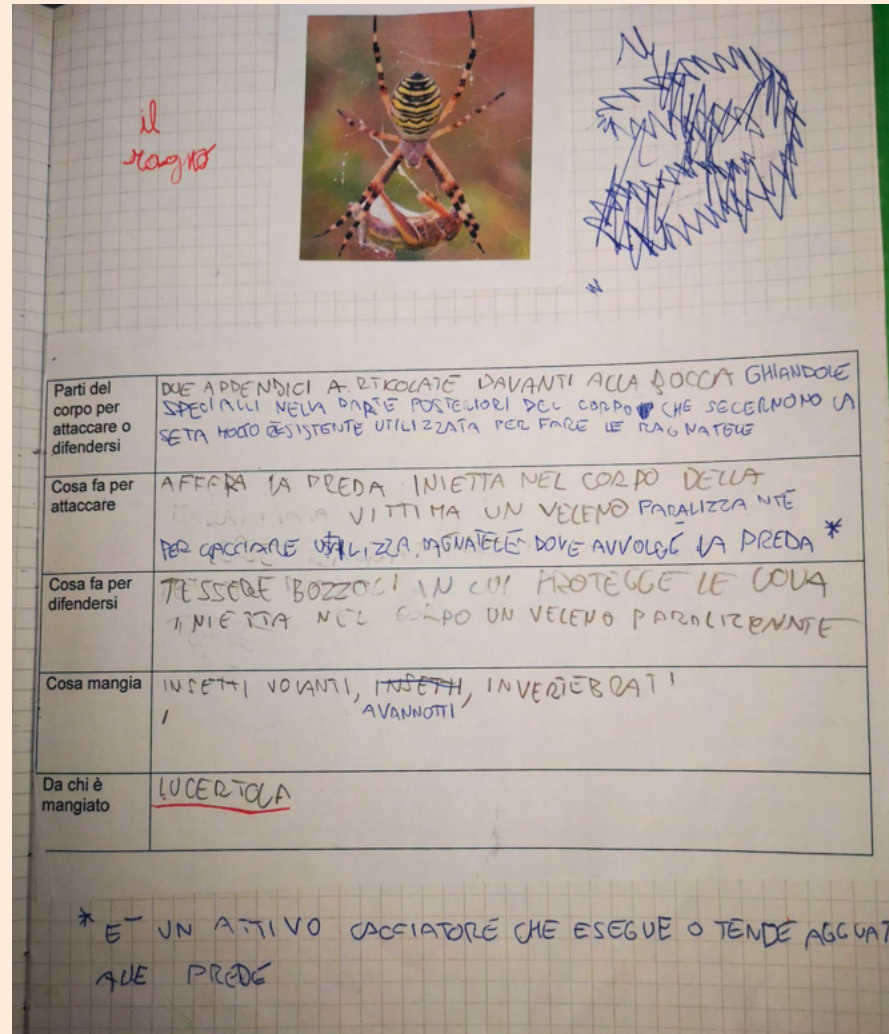 il
ragno
Parti del
corpo per
attaccare o
difendersi
DUE APPENDICI ARTICOLATE DAVANTI ALLA BOCCA GHIANDOLE
SPECIALLI NELLA PARTE POSTERIORI DEL CORPO CHE SECERNONO LA
SETA MOLTO RESISTENTE UTILIZZATA PER FARE LE RAGNATELE
Cosa fa per
attaccare
AFFERA LA PREDA INIETTA NEL CORPO DELLA
VITTIMA UN VELENO PARALIZZANTE
PER CACCIARE UTILIZZA RAGNATELE DOVE AVVOLGE LA PREDA *
Cosa fa per
difendersi
TESSERE BOZZOLI IN CUI PROTEGGE LE UOVA
INIETTA NEL CORPO UN VELENO PARALIZENNTE
Cosa mangia
INSETTI VOLANTI, INSETTI, INVERTEBRATI
AVANNOTTI
Da chi è
mangiato
LUCERTOLA
* E' UN ATTIVO CACCIATORE CHE ESEGUE O TENDE AGGUAT
ALLE PREDE